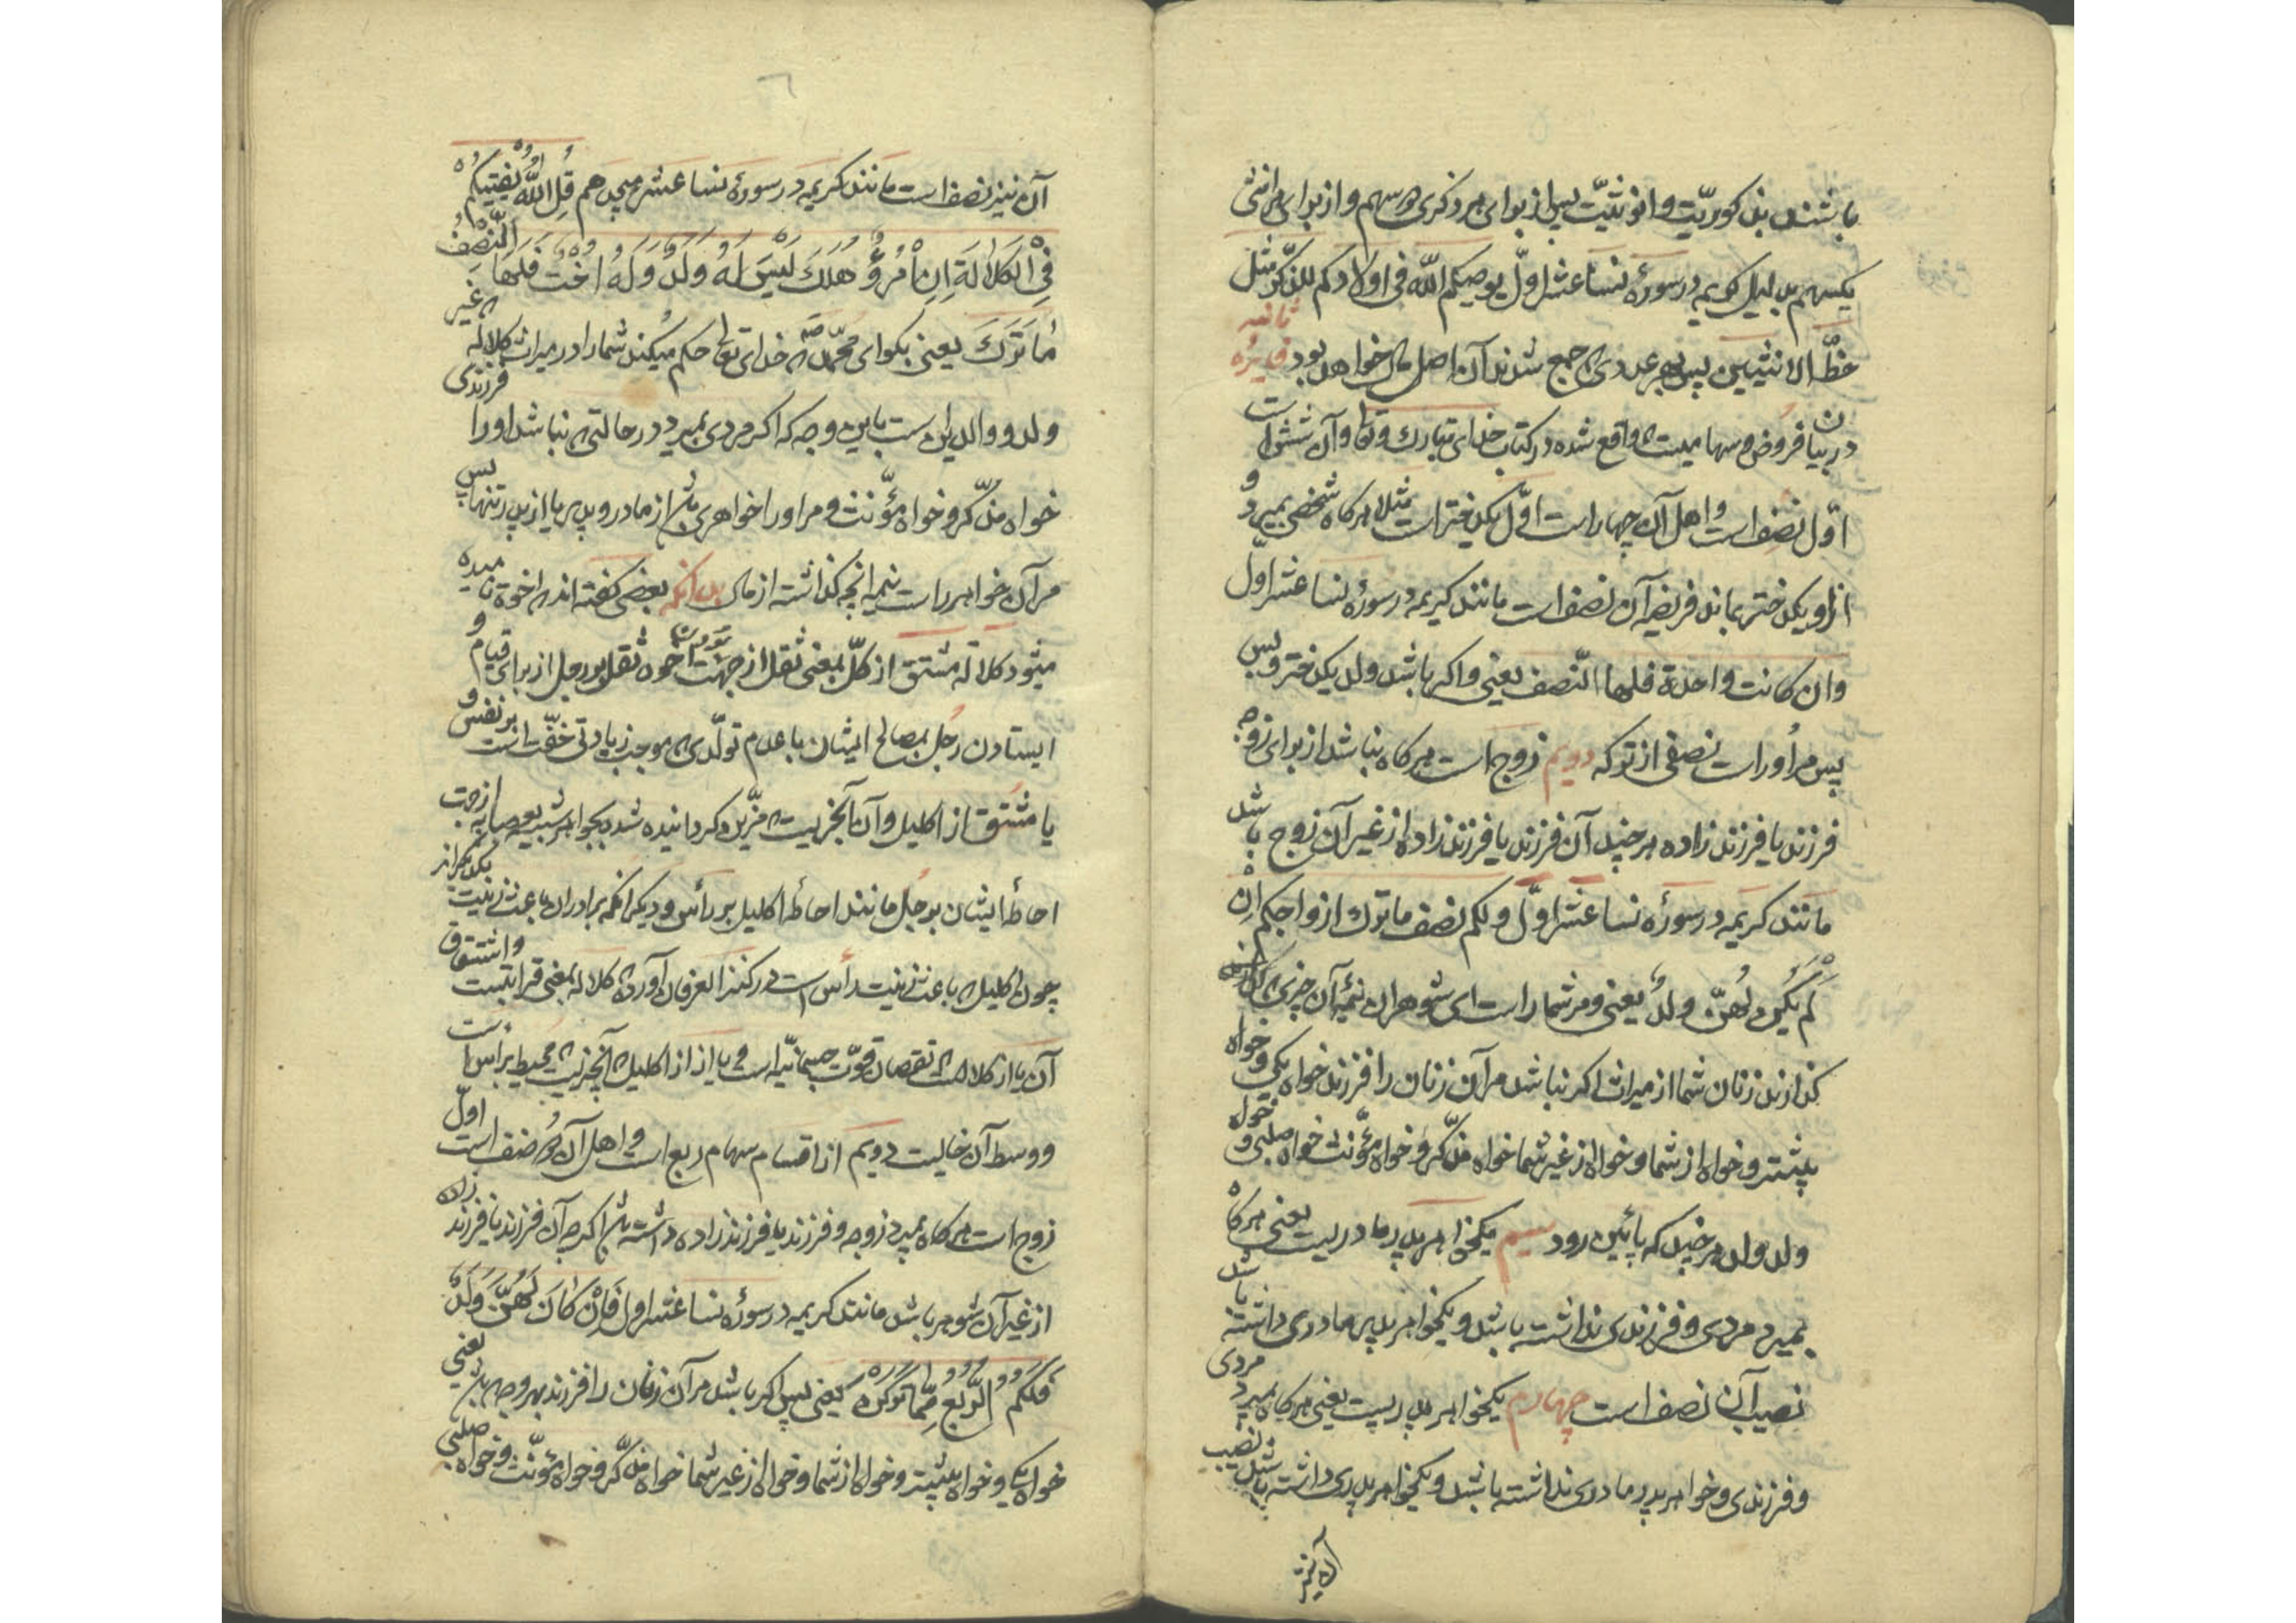 باشند بذکوریّت وانوثیّت پس از برای هر ذکری دو سهم و از برای هر انثی
یکسهم بدلیل کریمه در سورۀ نسا عشر اوّل یوصیکم اللّه فی اولادکم للذّکر مثل
حظّ الانثیین پس بهر عددی که جمع شدند آن اصل مال خواهد بود فایدۀ ثانیه
در بیان فروض و سهامیست که واقع شده در کتاب خدای تبارک وتعالی وآن شش است
اوّل نصف است و اهل آن چهار است اوّل یکدختر است مثلا هرکاه شخصی بمیرد و
از او یکدختر بماند فریضۀ آن نصف است مانند کریمه در سورۀ نسا عشر اوّل
وان کانت واحدة فلها النّصف یعنی واکر باشد ولد یکدختر و بس
پس مر اوراست نصفی از ترکه دویم زوج است هرکاه نباشد از برای زوجه
فرزند یا فرزند زاده هرچند آن فرزند یا فرزند زاده از غیر آن زوج باشد
مانند کریمه در سورۀ نسا عشر اوّل ولکم نصف ما ترک ازواجکم ان
لم یکن لهنّ ولدٌ یعنی ومر شما راست ای شوهران نیمۀ آن چیزی که
کذارند زنان شما از میراث اکر نباشد مر آن زنان را فرزند خواه یکی و خواه
بیشتر و خواه از شما و خواه از غیر شما خواه مذّکر و خواه مؤنّث خواه صلبی و خواه
ولد ولد هرچند که پائین رود سیم یکخواهر پدر مادریست یعنی هرکاه
بمیرد مردی و فرزندی نداشته باشد و یکخواهر پدر مادری داشته باشد
نصیب آن نصف است چهارم یکخواهر پدریست یعنی هرکاه بمیرد مردی
و فرزندی و خواهر پدر مادری نداشته باشد و یکخواهر پدری داشته باشد نصیب
آن نیز
٦
آن نیز نصف است مانند کریمه در سورۀ نسا عشر هیجدهم قُلِ اللّٰهُ یُفتیکُم
فِی الکَلالَةِ اِنِ امْرُؤٌ هَلَکَ لَیْسَ لَهُ وَلَدٌ وَلَهُ اُخْتٌ فَلَها النّصفُ
ما تَرَکَ یعنی بکو ای محمّد ص که خدای تعالی حکم میکند شما را در میراث کلاله که غیر
ولد و والدین است باین وجه که اکر مردی بمیرد در حالتی که نباشد او را فرزندی
خواه مذّکر و خواه مؤنّث و مر او را خواهری باشد از مادر و پدر یا از پدر تنها پس
مر آن خواهر راست نیمه انچه کذاشته از مال بدانکه بعضی کفته اند که اخوة نامیده
میشود کلاله مشتق از کلّ بمعنی ثقل از جهت بودن اخوه ثقل بر رجل از برای قیام و
ایستادن رجل بمصالح ایشان با عدم تولّدی که موجب زیادتی خفّت است بر نفس و
یا مشتق از اکلیل وآن آنچیزیست که مزّین کردانیده شد بجواهر شبیه بعصابه از جهت
احاطۀ ایشان برجل مانند احاطۀ اکلیل بر رأس و دیکر انکه برادران باعث زینت یکدیکراند
چون اکلیل که باعث زینت رأس است در کنز العرفان آورده که کلاله بمعنی قرابتست واشتقاق
آن یا از کلالست که نقصان قوّت جسمانیّه است و یا از اکلیل که آنچیزیست که محیط برأس است
و وسط آن خالیست دویم از اقسام سهام ربع است و اهل آن دو صنف است اوّل
زوج است هرکاه بمیرد زوجه و فرزند یا فرزند زاده داشته باشد اکرچه آن فرزند یا فرزند زاده
از غیر آن شوهر باشد مانند کریمه در سورۀ نسا عشر اول فَاِنْ کانَ لَهُنَّ وَلَدٌ
فَلَکُمُ الرُّبُعُ مِمّا تَرَکْنَ یعنی پس اکر باشد مر آن زنان را فرزند بهر وجه که باشد یعنی
خواه یک و خواه بیشتر و خواه از شما و خواه از غیر شما خواه مذّکر و خواه مؤنّث و خواه صلبی